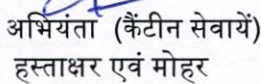 अभियंता (कैंटीन सेवायें)
हस्ताक्षर एवं मोहर